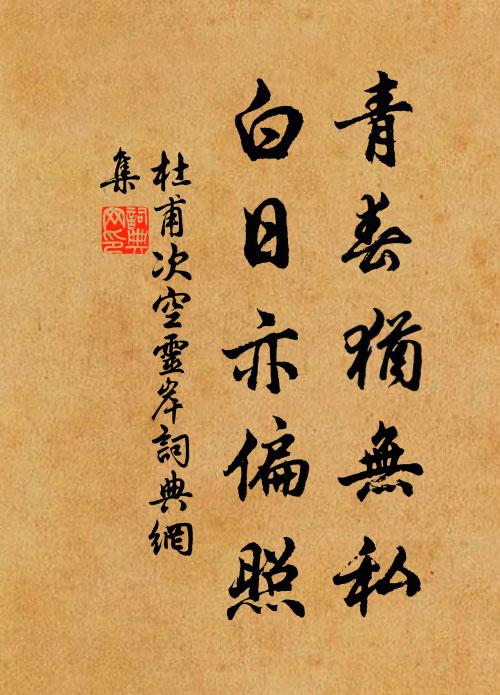 青春猶無私
白日亦偏照
杜甫次空靈岸詞典網
集
詞典网印